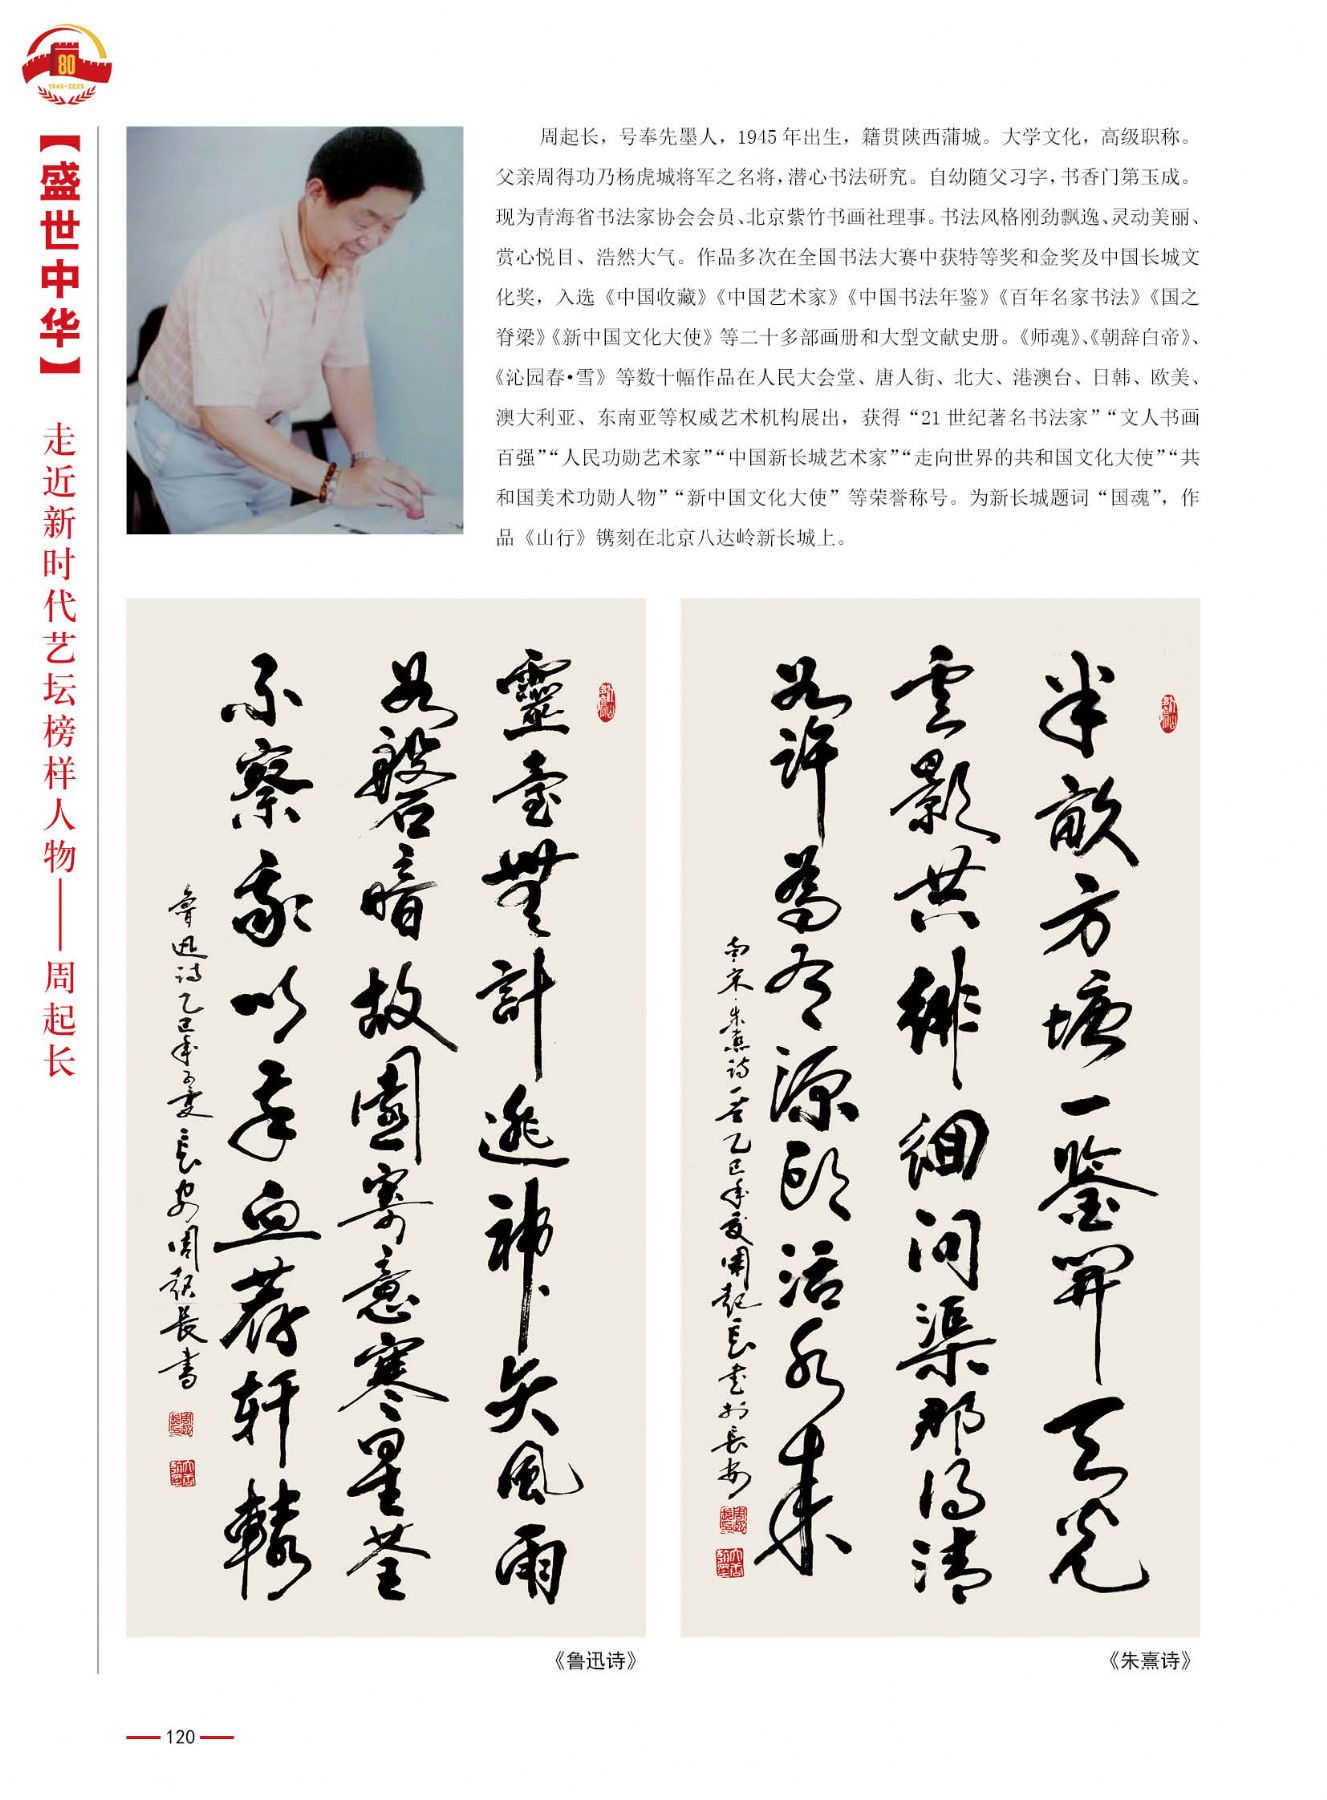 80
1945-2025
【盛世中华】
走近新时代艺坛榜样人物——周起长
周起长，号奉先墨人，1945 年出生，籍贯陕西蒲城。大学文化，高级职称。
父亲周得功乃杨虎城将军之名将，潜心书法研究。自幼随父习字，书香门第玉成。
现为青海省书法家协会会员、北京紫竹书画社理事。书法风格刚劲飘逸、灵动美丽、
赏心悦目、浩然大气。作品多次在全国书法大赛中获特等奖和金奖及中国长城文
化奖，入选《中国收藏》《中国艺术家》《中国书法年鉴》《百年名家书法》《国之
脊梁》《新中国文化大使》等二十多部画册和大型文献史册。《师魂》、《朝辞白帝》、
《沁园春•雪》等数十幅作品在人民大会堂、唐人街、北大、港澳台、日韩、欧美、
澳大利亚、东南亚等权威艺术机构展出，获得“21 世纪著名书法家”“文人书画
百强”“人民功勋艺术家”“中国新长城艺术家”“走向世界的共和国文化大使”“共
和国美术功勋人物”“新中国文化大使”等荣誉称号。为新长城题词“国魂”，作
品《山行》镌刻在北京八达岭新长城上。
靈臺無計逃神矢風雨
如磐暗故園寄意寒星荃
不察我以我血薦軒轅
魯迅诗乙巳年夏長安周起長書
《鲁迅诗》
半畝方塘一鑒開天光
雲影共徘徊問渠那得清
如許為有源頭活水來
南宋·朱熹詩一首乙巳年夏周起長書於長安
《朱熹诗》
120